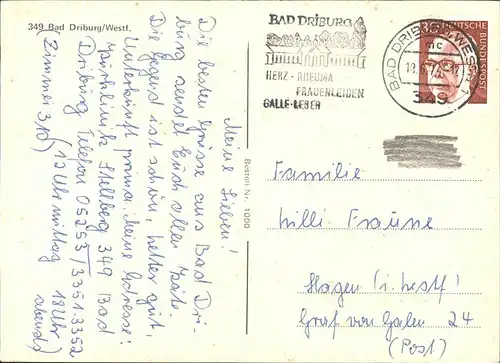 349 Bad Driburg/Westf.
Meine Lieben!
Die besten Grüsse aus Bad Dri-
burg sendet Euch allen
Die Gegend ist schön, Wetter gut,
Unterkunft prima. Meine Adresse:
Kurklinik 349 Bad
Driburg Telefon 05253/3351.3352
(Zimmer 310) (12 Uhr mittag
18 Uhr
abends)
Bestell Nr. 1000
BAD DRIBURG
HERZ-RHEUMA
FRAUENLEIDEN
GALLE-LEBER
BAD DRIBURG, WESTF
mc
349
30
DEUTSCHE
BUNDESPOST
Familie
Willi Fraune
Hagen (i. Westf)
Graf von Galen 24
(Post)